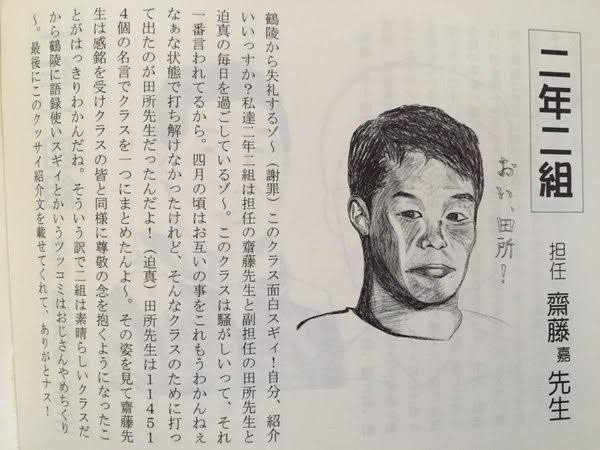 二年二組
担任 齋藤 嘉 先生
おい、田所！
鶴陵から失礼するゾ～（謝罪）このクラス面白スギィ！自分、紹介
いいっすか？私達二年二組は担任の齋藤先生と副担任の田所先生と
迫真の毎日を過ごしているゾ～。このクラスは騒がしいって、それ
一番言われてるから。四月の頃はお互いの事をこれもうわかんねぇ
なぁな状態で打ち解けなかったけれど、そんなクラスのために打っ
て出たのが田所先生だったんだよ！（迫真）田所先生は１１４５１
４個の名言でクラスを一つにまとめたんよ～。その姿を見て齋藤先
生は感銘を受けクラスの皆と同様に尊敬の念を抱くようになったこ
とがはっきりわかんだね。そういう訳で二組は素晴らしいクラスだ
から鶴陵に語録使いスギィとかいうツッコミはおじさんやめちくり
～。最後にこのクッサイ紹介文を載せてくれて、ありがとナス！